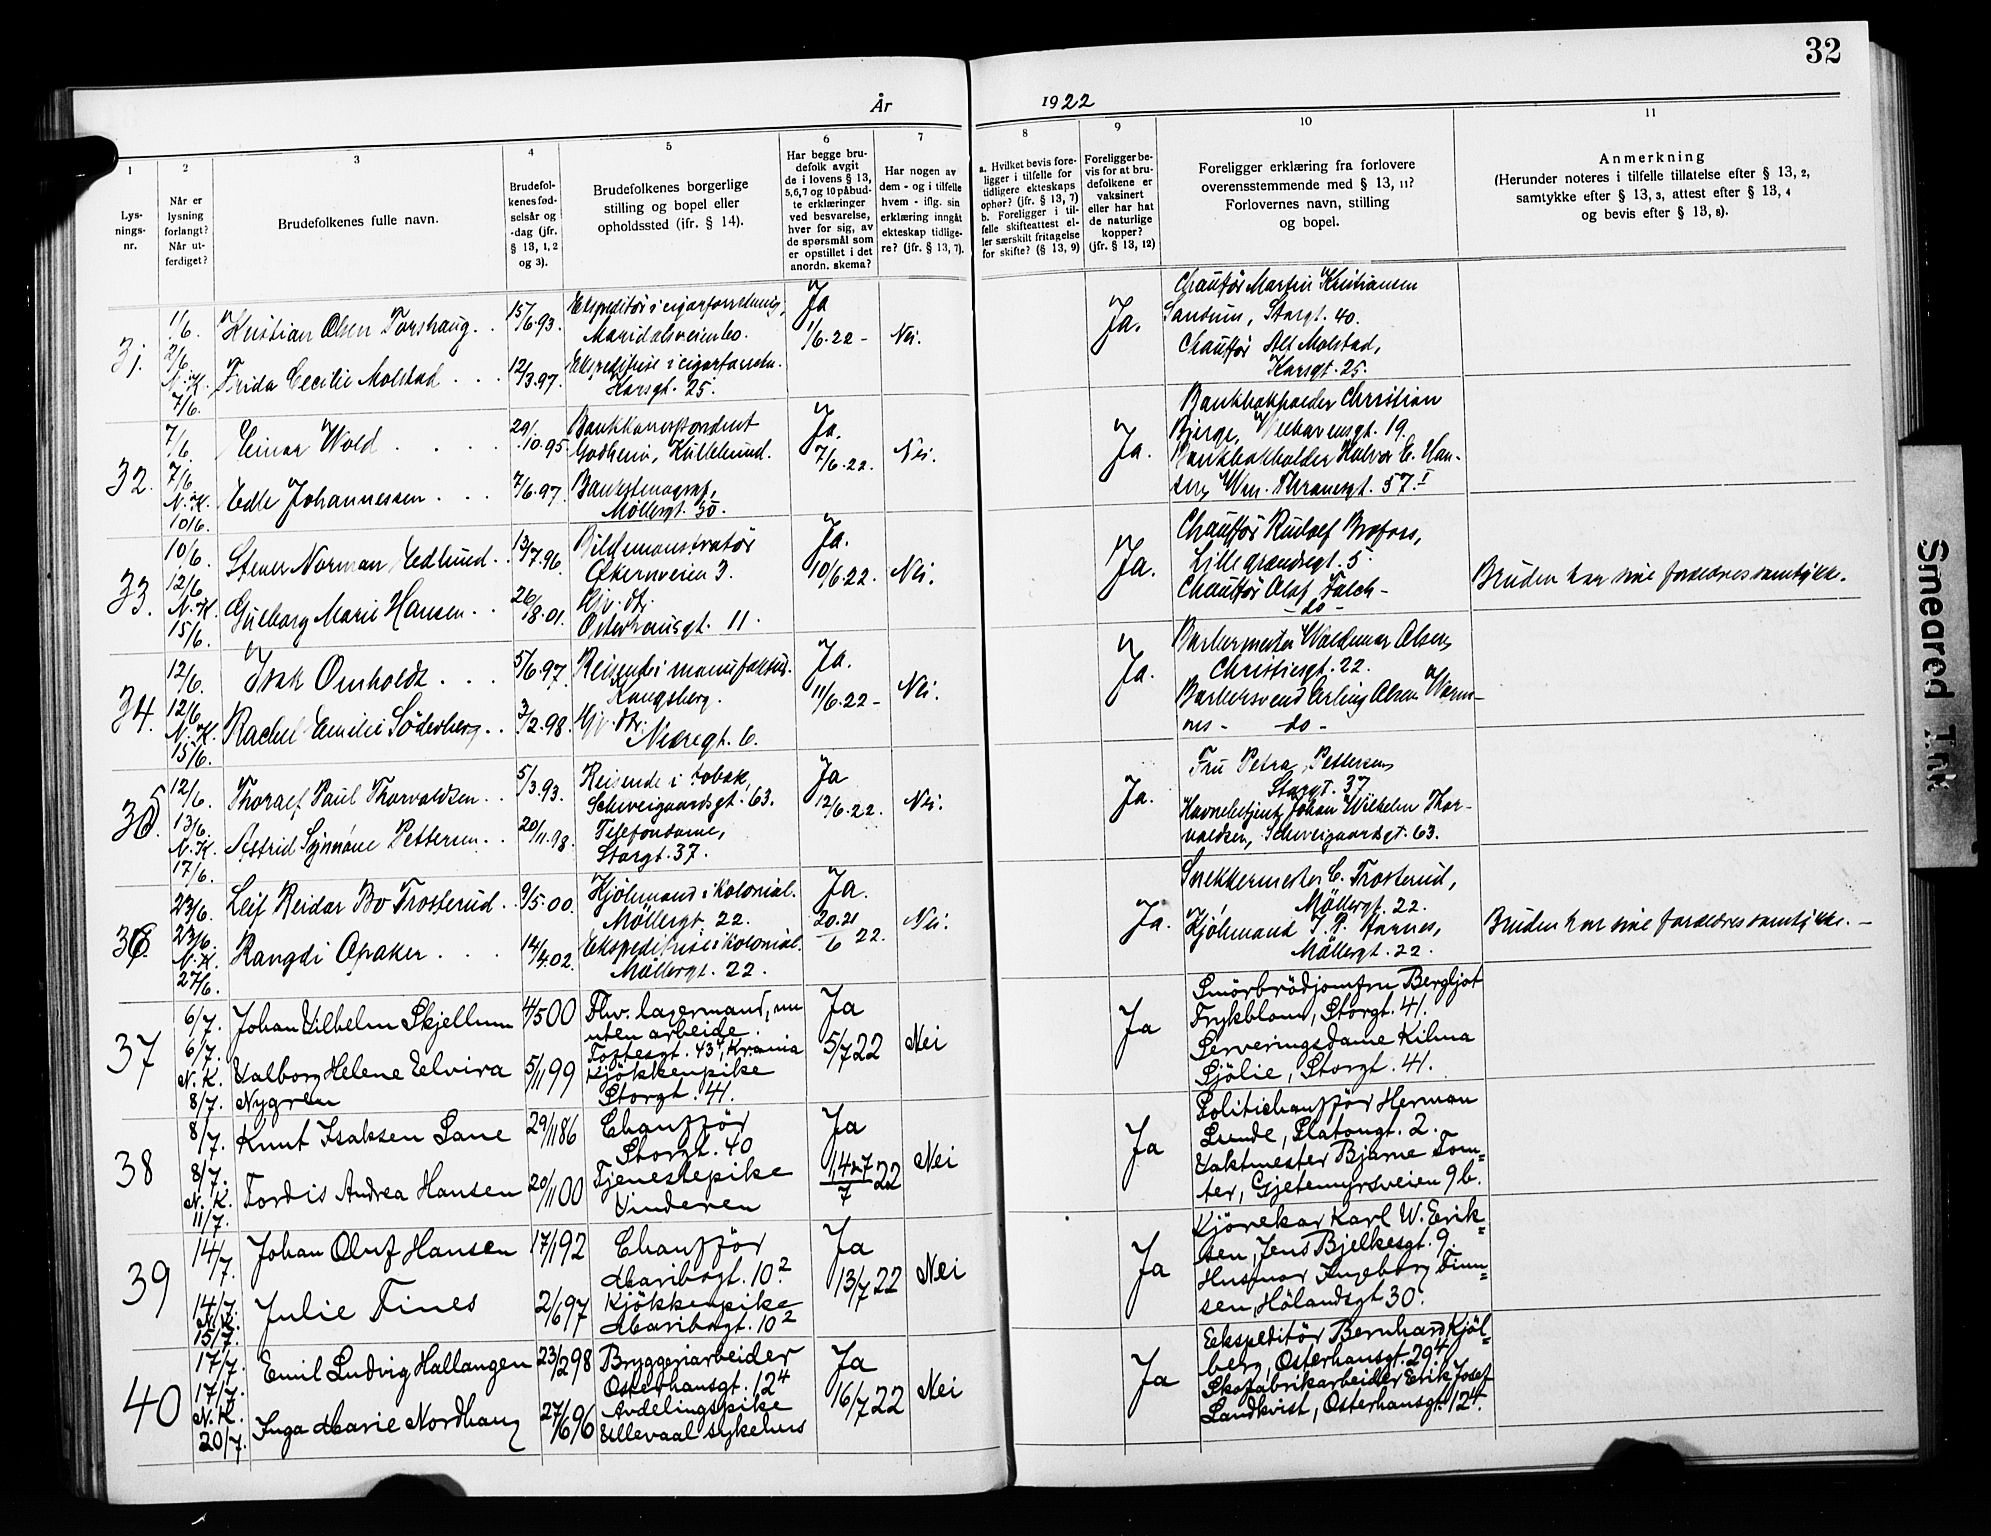 32
År 1922
1
2
3
4
5
6
7
8
9
10
11
Lys-
nings-
nr.
Når er
lysning
forlangt?
Når ut-
ferdiget?
Brudefolkenes fulle navn.
Brudefol-
kenes fød-
selsår og
-dag (jfr.
§ 13, 1, 2
og 3).
Brudefolkenes borgerlige
stilling og bopel eller
opholdssted (ifr. § 14).
Har begge bru-
defolk avgit
de i lovens § 13,
5,6,7 og 10 påbud-
te erklæringer
ved besvarelse,
hver for sig, av
de spørsmål som
er opstillet i det
anordn. skema?
Har nogen av
dem - og i tilfelle
hvem - iflg. sin
erklæring inngått
ekteskap tidlige-
re? (jfr. § 13, 7).
a. Hvilket bevis fore-
ligger i tilfelle for
tidligere ekteskaps
ophør? (jfr. § 13, 7)
b. Foreligger i til-
felle skifteattest el-
ler særskilt fritagelse
for skifte? (§ 13, 9)
Foreligger be-
vis for at bru-
defolkene er
vaksinert
eller har hat
de naturlige
kopper?
(jfr. § 13, 12)
Foreligger erklæring fra forlovere
overensstemmende med § 13, 11?
Forlovernes navn, stilling
og bopel.
Anmerkning
(Herunder noteres i tilfelle tillatelse efter § 13, 2,
samtykke efter § 13, 3, attest efter § 13, 4
og bevis efter § 13, 8).
31.
1/6.
2/6
N.K.
7/6.
Kristian Olsen Torshaug
Frida Cecilie Molstad
15/6.93.
12/3.97.
Ekspeditør i cigarforretning,
Maridalsveien
Ekspeditrise i cigarforretn.
Korsgt. 25.
Ja
1/6.22 -
Nei.
Ja.
Chauffør Martin Kristiansen
Sandum, Storgt. 40.
Chauffør Alf Molstad,
Korsgt. 25.
32.
7/6.
7/6
N.K.
10/6.
Einar Wold
Edle Johannessen
29/10.95
7/6.97.
Bankkorrespondent
Godheim, Kullelund.
Bankstenograf,
Møllergt. 50.
Ja.
7/6.22.
Nei.
Ja.
Bankbokholder Christian
Bjerge, Welhavensgt. 19.
Bankbokholder Halvor E. Han-
sen, Wm. Thranesgt. 57 I
33.
10/6.
12/6
N.K.
15/6.
Stener Norman Edlund
Gulborg Marie Hansen
13/7.96.
26/8.01.
Bildemonstratør
Økernveien 3.
Hjv. dtr.
Osterhausgt. 11.
Ja.
10/6.22.
Nei.
Ja.
Chauffør Rudolf Brofoss,
Lille grændsegt. 5.
Chauffør Olaf Falch -
- do -
Bruden har sine foreldres samtykke.
34.
12/6.
12/6
N.K.
15/6.
Isak Omholdt
Rachel Emilie Söderberg
5/6.97.
3/2.98.
Reisende i manufaktur.
Kongsberg.
Hjv. dtr.
Nieregt. 6.
Ja.
11/6.22 -
Nei.
Ja.
Barbermester Waldemar Olsen,
Christiesgt. 22.
Barbersvend Erling Olsen Warm-
nes - do -
35.
12/6.
13/6.
N.K.
17/6.
Thoralf Paul Thorvaldsen
Astrid Synnøve Pettersen
5/3.93.
20/11.98.
Reisende i tobak,
Schweigaardsgt. 63.
Telefondame,
Storgt. 37.
Ja
12/6.22.
Nei.
Ja.
Fru Petra Pettersen,
Storgt. 37
Havnebetjent Johan Wilhelm Thor-
valdsen, Schweigaardsgt. 63.
36.
23/6.
23/6.
N.K.
27/6.
Leif Reidar Bo Trosterud
Rangdi Opaker
9/5.00.
14/4.02.
Hjølmand i Kolonial.
Møllergt. 22.
Ekspeditrise i Kolonial.
Møllergt. 22.
Ja.
20.21
6 22.
Nei.
Ja.
Snekkermester C. Trosterud,
Møllergt. 22.
Hjølmand I. P. Aarnes,
Møllergt. 22.
Bruden har sine foreldres samtykke. -
37
6/7.
6/7.
N.K.
8/7.
Johan Vilhelm Skjellum
Valborg Helene Elvira
Nygren
4/500
5/1199
Fhv. lagermand, nu
uten arbeide.
Toftesgt. 43 4, Krania
Kjökkenpike
Storgt. 41.
Ja
5/722
Nei
Ja
Smörbrödjomfru Bergljot
Frykblom, Storgt. 41.
Serveringsdame Kilma
Sjölie, Storgt. 41.
38
8/7.
8/7.
N.K.
11/7.
Knut Isaksen Lane
Tordis Andrea Hansen
29/1186
20/1100
Chaufför
Storgt. 40
Tjenestepike
Vinderen
Ja
1,4 27
7 22
Nei
Ja
Politichauffør Herman
Lunde, Platougt. 2.
Vaktmester Bjarne Tom=
ter, Gjetemyrsveien 9b.
39
14/7.
14/7.
N.K.
15/7.
Johan Oluf Hansen
Julie Fines
17/192
2/697
Chauffør
Maribogt. 10 2
Kjökkenpike
Maribogt. 10 2
Ja
13/722
Nei
Ja
Kjörekar Karl W. Erik=
sen, Jens Bjelkesgt. 9.
Husmor Ingeborg Finn=
sen, Hölandsgt 30.
40
17/7.
17/7.
N.K.
20/7.
Emil Ludvig Hallangen
Inga Marie Nordhaug
23/298
27/696
Bryggeriarbeider
Osterhausgt. 12 4
Avdelingspike
Ullevaal sykehus
Ja
16/722
Nei
Ja
Ekspeditör Bernhard Kjöl=
berg, Osterhausgt. 29 4
Skofabrikarbeider Erik Josef
Landkvist, Osterhausgt 12 4.
Smeared Ink